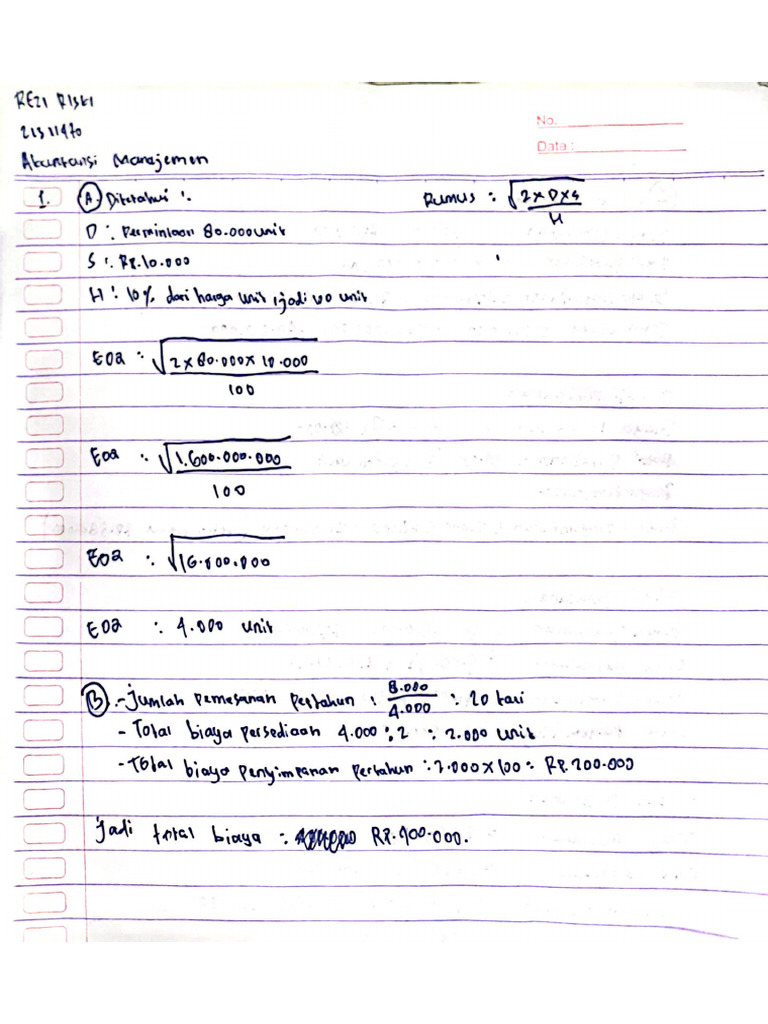 REZI RISKI
21311470
Akuntansi Manajemen
No.
Date :
1. A Diketahui : Rumus : √2 x D x S
H
D : Permintaan 80.000 unit
S : Rp. 10.000
H : 10% dari harga unit, jadi 100 unit
EOQ : √2 x 80.000 x 10.000
100
EOQ : √1.600.000.000
100
EOQ : √16.000.000
EOQ : 4.000 unit
B .- Jumlah pemesanan pertahun : 8.000 : 20 kari
4.000
- Total biaya persediaan 4.000 : 2 : 2.000 unit
- Total biaya penyimpanan pertahun : 2.000 x 100 = Rp. 200.000
Jadi total biaya : Rp. 400.000.